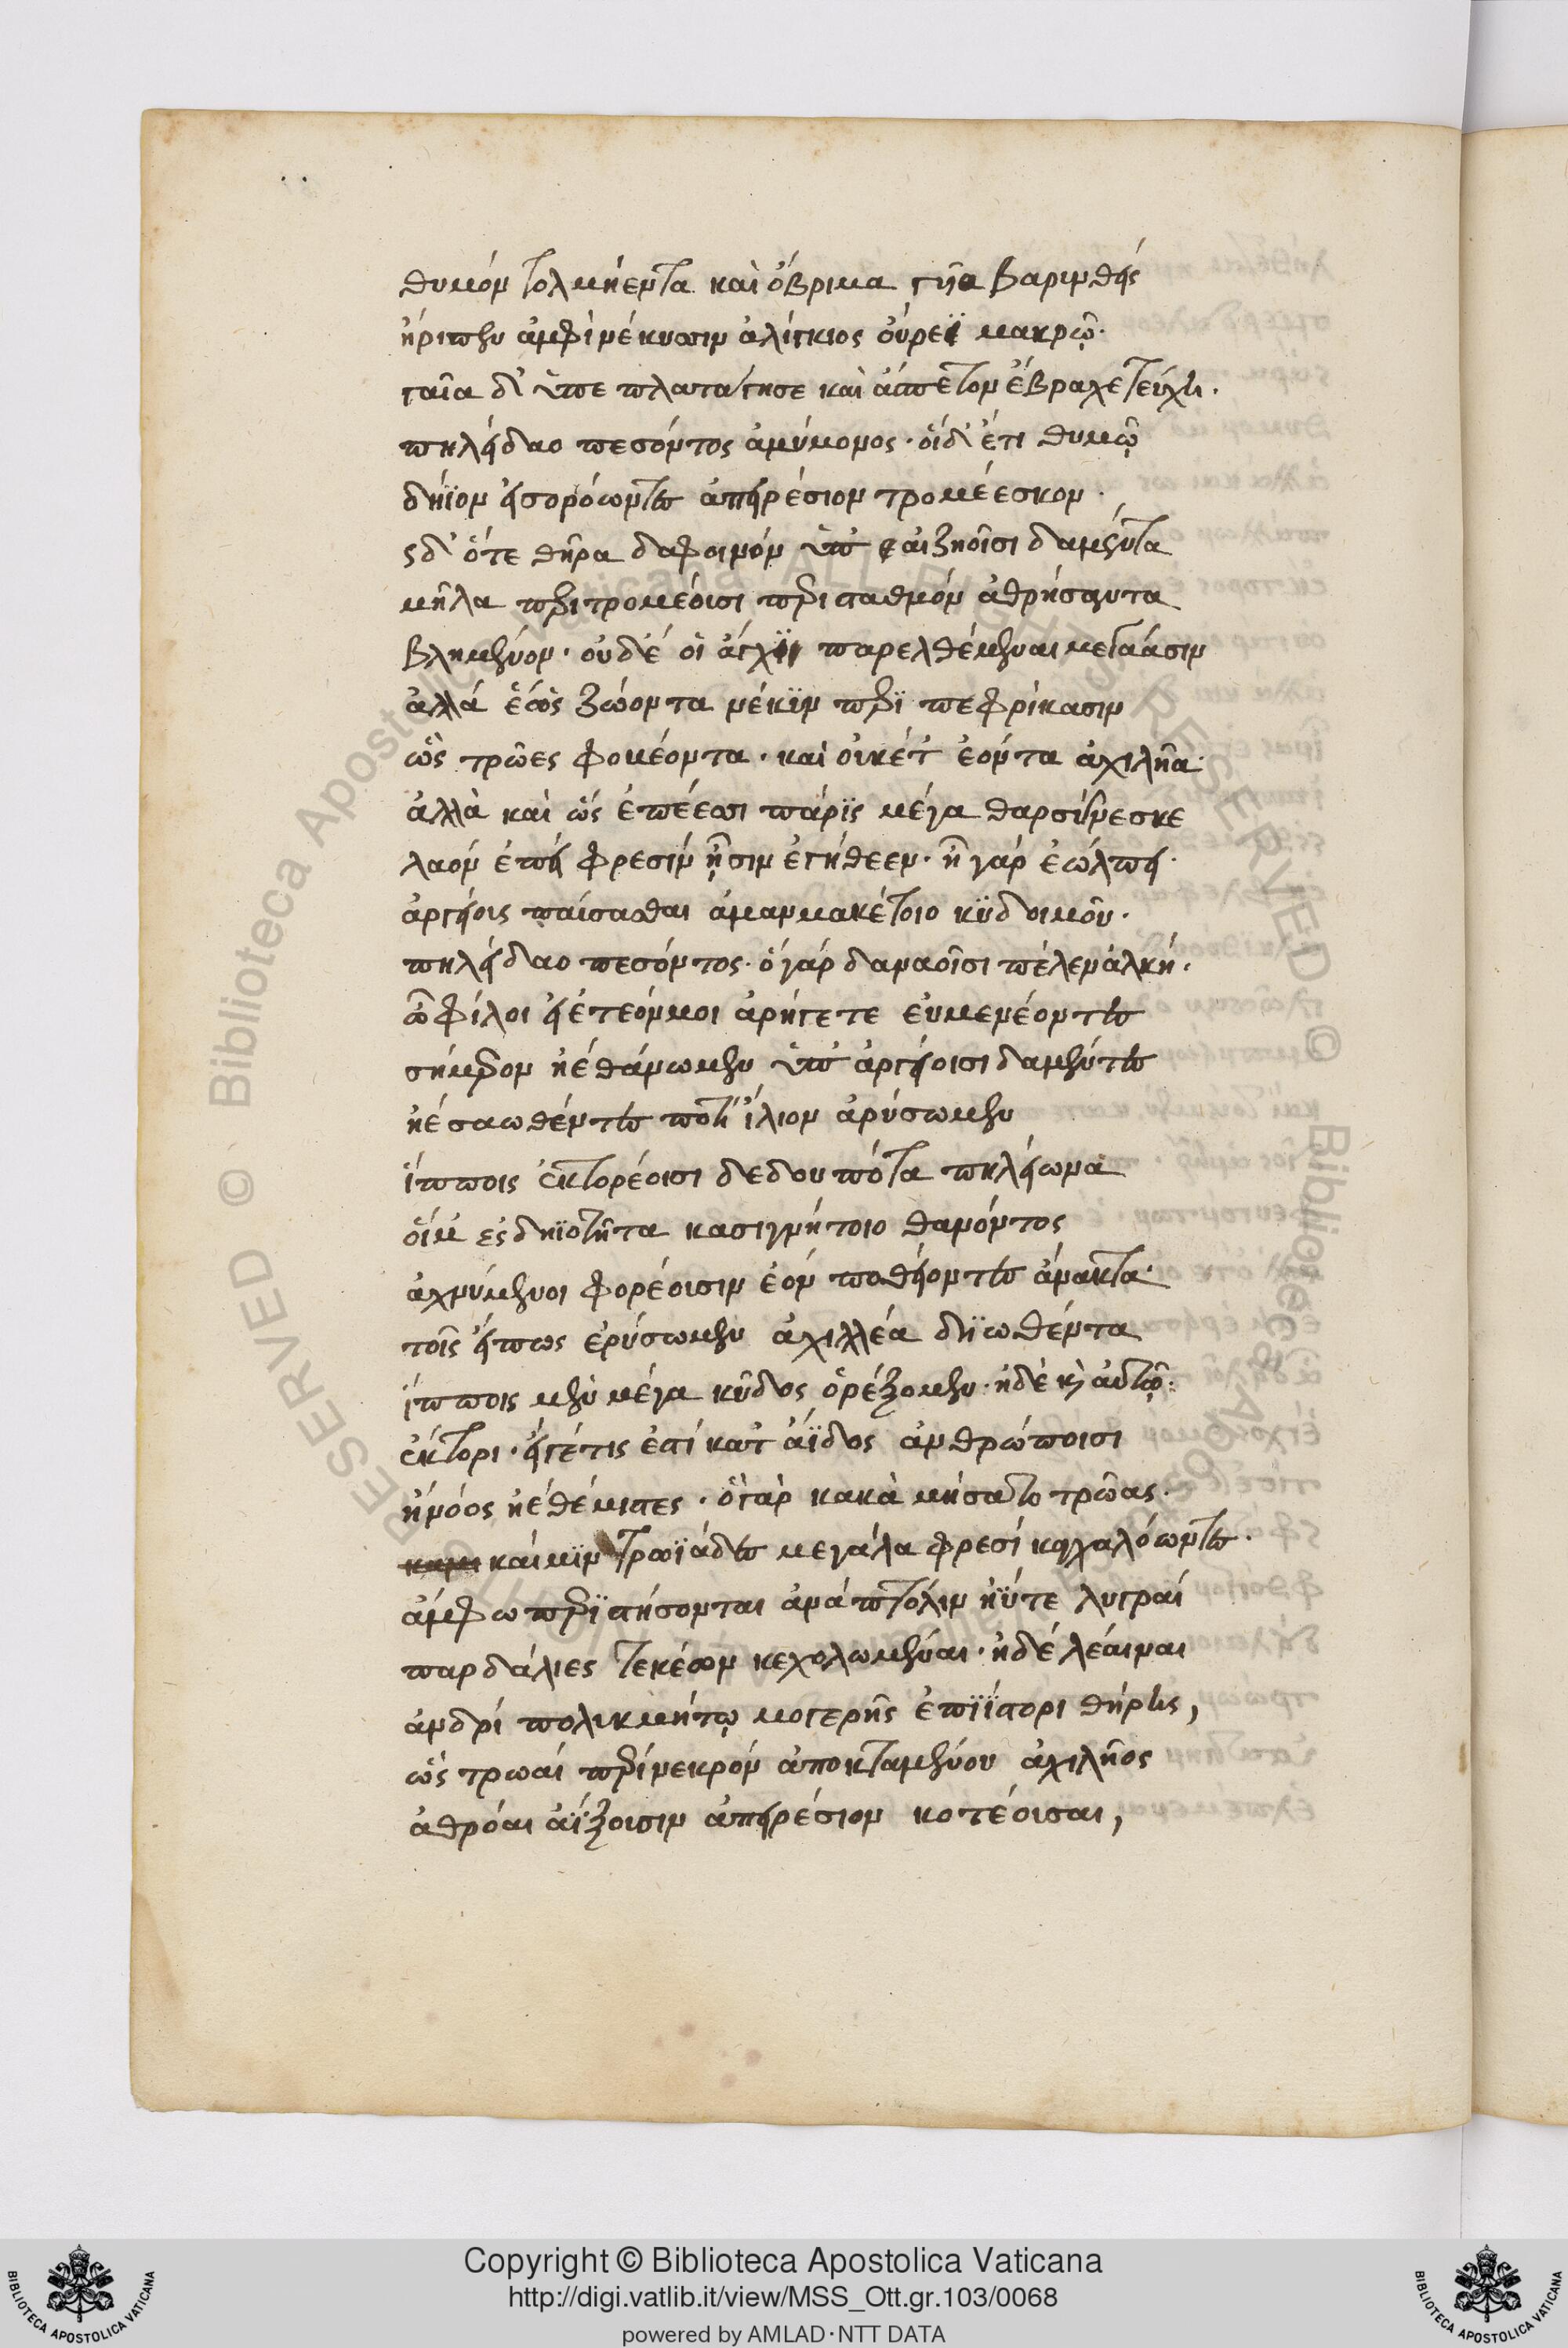 θυμόν τολμήεντα καὶ ὄβριμα γυῖα βαρυνθείς
ἤριπεν ἀμφὶ νέκυσσιν ἀλίγκιος οὔρεϊ μακρῷ.
γαῖα δ' ὑπε πλατάγησε καὶ ἄσπετον ἔβραχε τεύχη.
πηλείδαο πεσόντος ἀμύμονος. οἱδ' ἔτι θυμῷ
δήϊον εἰσορόωντες ἀπειρέσιον τρομέεσκον.
ς δ' ὅτε θῆρα δαφοινόν ὑπ' αἰζηοῖσι δαμέντα
μῆλα περιτρομέουσι περὶ σταθμόν ἀθρήσαντα
βλημένον. οὐδέ οἱ ἄγχϊ παρελθέμεναι μεμάασιν
ἀλλά ἑ ὡς ζώοντα νέκϋν περϊ πεφρίκασιν
ὣς τρῶες φοβέοντα. καὶ οὐκέτ' ἐόντα ἀχιλῆα
ἀλλὰ καὶ ὣς ἐπέεσσι πάρϊς μέγα θαρσύνεσκε
λαόν ἐπεί φρεσίν ᾗσιν ἐγήθεεν. ἦ γάρ ἐώλπει
ἀργείους παύσασθαι ἀμαιμακέτοιο κϋδοιμοῦ.
πηλείδαο πεσόντος. ὁ γάρ δαναοῖσι πέλεν ἀλκή.
ὦ φίλοι εἰ ἐτεόν μοι ἀρήγετε εὐμενέοντες
σήμερον ἠέ θάνωμεν ὑπ' ἀργείοισι δαμέντες
ἠέ σαωθέντες ποτί ἴλιον ἀρύσωμεν
ἵπποις ἑκτορέοισι δεδουπότα πηλείωνα
οἵ μ' ἐς δηϊοτῆτα κασιγνήτοιο θανόντος
ἀχνύμενοι φορέουσιν ἑόν ποθέοντες ἄνακτα
τοῖς εἴπως ἐρύσωμεν ἀχιλλέα δῃωθέντα
ἵπποις μὲν μέγα κῦδος ὀρέξομεν. ἠδὲ κὶ αὐτῷ
ἕκτορι. εἴ γέ τις ἐστί κατ' ἄϊδος ἀνθρώποισι
ἢ νόος ἠέ θέμιστες. ὃ γὰρ κακὰ μήσατο τρῶας.
καί μϊν τρωϊάδες μεγάλα φρεσί καγχαλόωντες.
ἀμφω περϊστήσονται ἀνά πτόλιν ἠΰτε λυγραί
παρδάλιες τεκέων κεχολωμέναι. ἠδέ λέαιναι
ἀνδρί πολυκμήτῳ μογερῆς ἐπϊΐστορι θήρης,
ὣς τρωαί περί νεκρόν ἀποκταμένου ἀχιλῆος
ἀθρόαι ἀΐξουσιν ἀπειρέσιον κοτέουσαι,
Copyright © Biblioteca Apostolica Vaticana
http://digi.vatlib.it/view/MSS_Ott.gr.103/0068
powered by AMLAD·NTT DATA